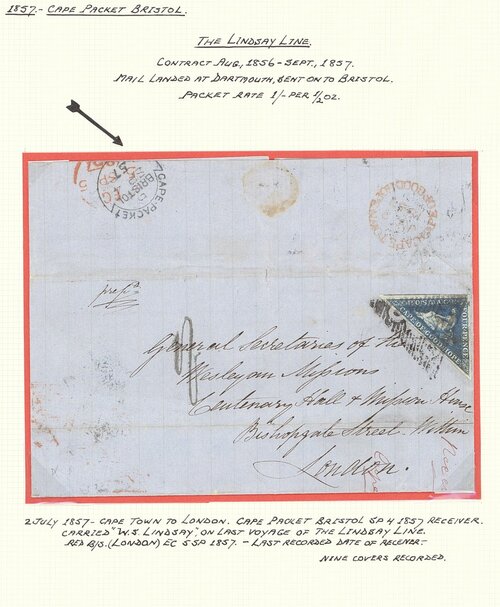 1857.- CAPE PACKET BRISTOL.
THE LINDSAY LINE.
CONTRACT AUG, 1856 - SEPT, 1857.
MAIL LANDED AT DARTMOUTH, SENT ON TO BRISTOL.
PACKET RATE 1/- PER 1/2 OZ.
CAPE PACKET
BRISTOL
EC
FOUR PENCE
prepd
General Secretaries of the
Wesleyan Missions
Centenary Hall & Mission House
Bishopgate Street Within
London.
2 JULY 1857 - CAPE TOWN TO LONDON. CAPE PACKET BRISTOL SP 4 1857 RECEIVER.
CARRIED "W.S. LINDSAY", ON LAST VOYAGE OF THE LINDSAY LINE.
RED B/S. (LONDON) EC 5 SP 1857. - LAST RECORDED DATE OF RECEIVER -
NINE COVERS RECORDED.